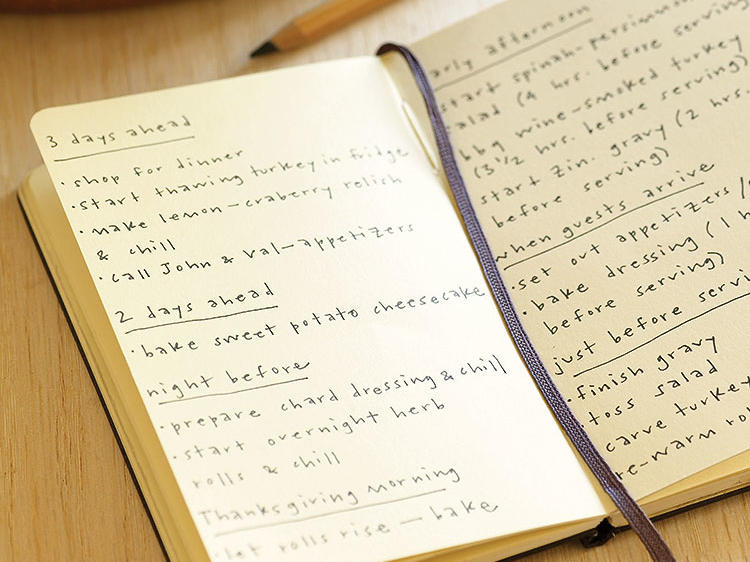 3 days ahead
· shop for dinner
· start thawing turkey in fridge
· make lemon-craberry relish
& chill
· call John & Val-appetizers
2 days ahead
· bake sweet potato cheesecake
night before
· prepare chard dressing & chill
· start overnight herb
rolls & chill
Thanksgiving Morning
· let rolls rise — bake
arly afternoon
start spinah-persimmon
salad (4 hrs. before serving)
bbq wine-smoked turkey
(3 1/2 hrs. before serving)
start zin. gravy (2 hrs.
before serving)
when guests arrive
· set out appetizers /
· bake dressing (1 h
before serving)
just before servi
· finish gravy
· toss salad
carve turkey
re-warm ro